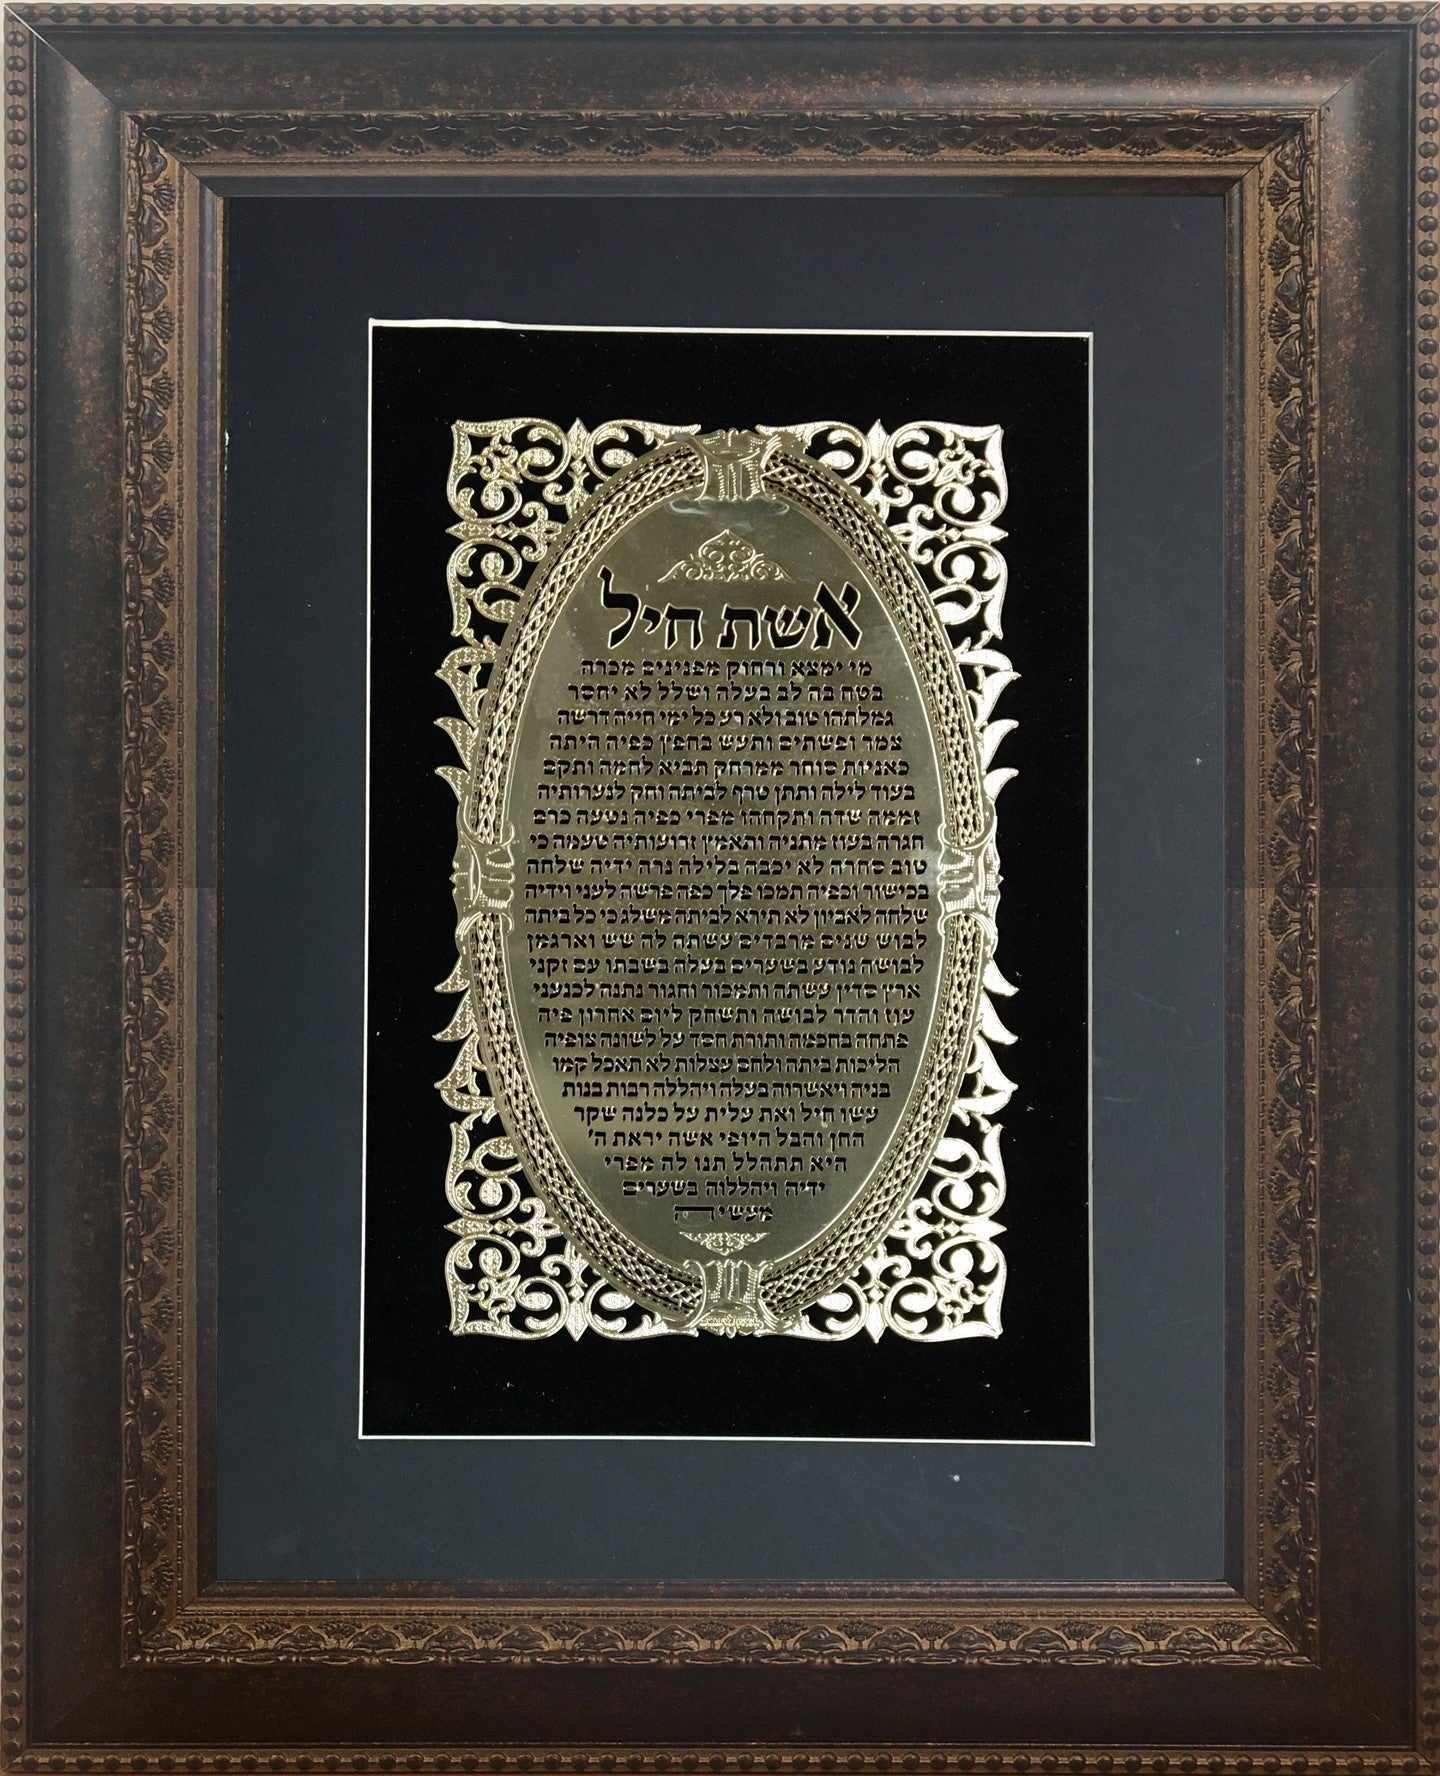 אשת חיל
מי ימצא ורחוק מפנינים מכרה
בטח בה לב בעלה ושלל לא יחסר
גמלתהו טוב ולא רע כל ימי חייה דרשה
צמר ופשתים ותעש בחפץ כפיה היתה
כאניות סוחר ממרחק תביא לחמה ותקם
בעוד לילה ותתן טרף לביתה וחק לנערותיה
זממה שדה ותקחהו מפרי כפיה נטעה כרם
חגרה בעוז מתניה ותאמץ זרועותיה טעמה כי
טוב סחרה לא יכבה בלילה נרה ידיה שלחה
בכישור וכפיה תמכו פלך כפה פרשה לעני וידיה
שלחה לאביון לא תירא לביתה משלג כי כל ביתה
לבוש שנים מרבדים עשתה לה שש וארגמן
לבושה נודע בשערים בעלה בשבתו עם זקני
ארץ סדין עשתה ותמכור וחגור נתנה לכנעני
עוז והדר לבושה ותשחק ליום אחרון פיה
פתחה בחכמה ותורת חסד על לשונה צופיה
הליכות ביתה ולחם עצלות לא תאכל קמו
בניה ויאשרוה בעלה ויהללה רבות בנות
עשו חיל ואת עלית על כלנה שקר
החן והבל היופי אשה יראת ה'
היא תתהלל תנו לה מפרי
ידיה ויהללוה בשערים
מעשיה